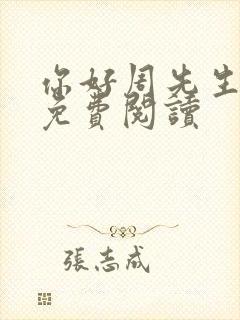 你好周先生
免費閱讀
張志成